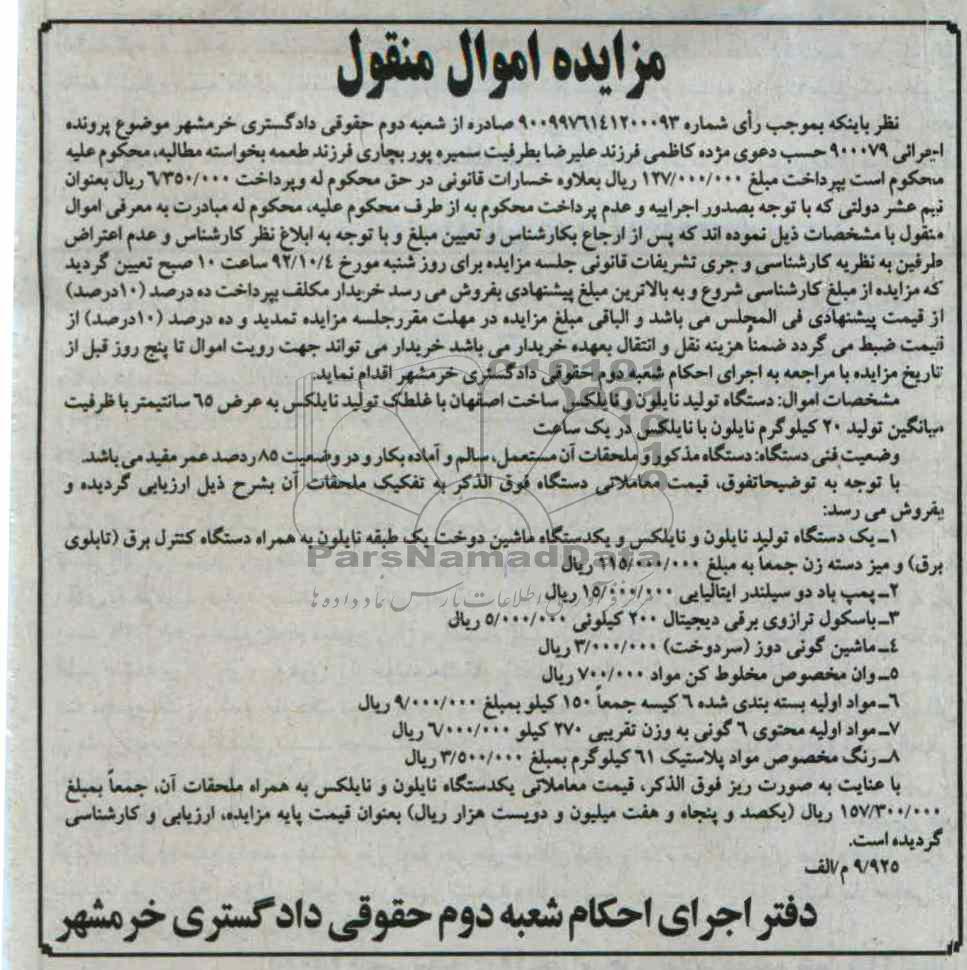 مزایده اموال منقول
نظر باینکه بموجب رأی شماره ۹۰۰۹۹۷۶۱۴۱۲۰۰۰۹۳ صادره از شعبه دوم حقوقی دادگستری خرمشهر موضوع پرونده
اجرائی ۹۰۰۰۷۹ حسب دعوی مژده کاظمی فرزند علیرضا بطرفیت سمیره پور بچاری فرزند طعمه بخواسته مطالبه، محکوم علیه
محکوم است بپرداخت مبلغ ۱۲۷/۰۰۰/۰۰۰ ریال بعلاوه خسارات قانونی در حق محکوم له وپرداخت ۶/۳۵۰/۰۰۰ ریال بعنوان
نیم عشر دولتی که با توجه بصدور اجراییه و عدم پرداخت محکوم به از طرف محکوم علیه، محکوم له مبادرت به معرفی اموال
منقول با مشخصات ذیل نموده اند که پس از ارجاع بکارشناس و تعیین مبلغ و با توجه به ابلاغ نظر کارشناس و عدم اعتراض
طرفین به نظریه کارشناسی و جری تشریفات قانونی جلسه مزایده برای روز شنبه مورخ ۹۲/۱۰/۴ ساعت ۱۰ صبح تعیین گردید
که مزایده از مبلغ کارشناسی شروع و به بالاترین مبلغ پیشنهادی بفروش می رسد خریدار مکلف بپرداخت ده درصد (۱۰درصد)
از قیمت پیشنهادی فی المجلس می باشد و الباقی مبلغ مزایده در مهلت مقررجلسه مزایده تمدید و ده درصد (۱۰درصد) از
قیمت ضبط می گردد ضمناً هزینه نقل و انتقال بعهده خریدار می باشد خریدار می تواند جهت رویت اموال تا پنج روز قبل از
تاریخ مزایده با مراجعه به اجرای احکام شعبه دوم حقوقی دادگستری خرمشهر اقدام نماید.
مشخصات اموال: دستگاه تولید نایلون و نایلکس ساخت اصفهان با غلطک تولید نایلکس به عرض ۶۵ سانتیمتر با ظرفیت
میانگین تولید ۲۰ کیلوگرم نایلون با نایلکس در یک ساعت
وضعیت فنی دستگاه: دستگاه مذکور و ملحقات آن مستعمل، سالم و آماده بکار و در وضعیت ۸۵ ردصد عمر مفید می باشد.
با توجه به توضیحاتفوق، قیمت معاملاتی دستگاه فوق الذکر به تفکیک ملحقات آن بشرح ذیل ارزیابی گردیده و
بفروش می رسد:
۱ـ یک دستگاه تولید نایلون و نایلکس و یکدستگاه ماشین دوخت یک طبقه نایلون به همراه دستگاه کنترل برق (تابلوی
برق) و میز دسته زن جمعاً به مبلغ ۱۱۵/۰۰۰/۰۰۰ ریال
ParsNamadData
مرکز فرآوری اطلاعات پارس نماد داده ها
۲ـ پمپ باد دو سیلندر ایتالیایی ۱۵/۰۰۰/۰۰۰ ریال
۳ـ باسکول ترازوی برقی دیجیتال ۲۰۰ کیلوئی ۵/۰۰۰/۰۰۰ ریال
۴ـ ماشین گونی دوز (سردوخت) ۳/۰۰۰/۰۰۰ ریال
۵ـ وان مخصوص مخلوط کن مواد ۷۰۰/۰۰۰ ریال
۶ـ مواد اولیه بسته بندی شده ۶ کیسه جمعاً ۱۵۰ کیلو بمبلغ ۹/۰۰۰/۰۰۰ ریال
۷ـ مواد اولیه محتوی ۶ گونی به وزن تقریبی ۲۷۰ کیلو ۶/۰۰۰/۰۰۰ ریال
۸ـ رنگ مخصوص مواد پلاستیک ۶۱ کیلوگرم بمبلغ ۳/۵۰۰/۰۰۰ ریال
با عنایت به صورت ریز فوق الذکر، قیمت معاملاتی یکدستگاه نایلون و نایلکس به همراه ملحقات آن، جمعاً بمبلغ
۱۵۷/۳۰۰/۰۰۰ ریال (یکصد و پنجاه و هفت میلیون و دویست هزار ریال) بعنوان قیمت پایه مزایده، ارزیابی و کارشناسی
گردیده است.
۹/۹۲۵ م/الف
دفتر اجرای احکام شعبه دوم حقوقی دادگستری خرمشهر